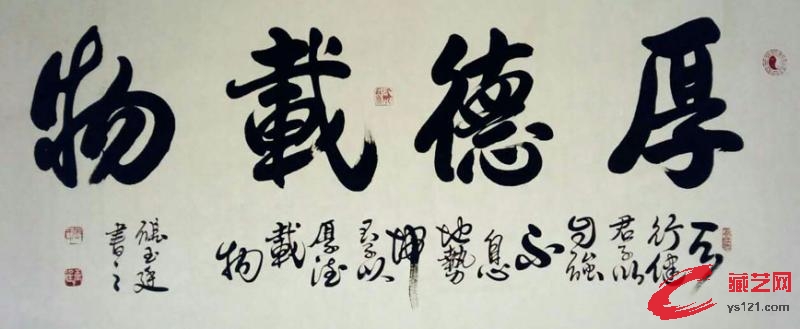 厚德載物
天
行健
君子以
自強
不
息
地勢
坤
君子以
厚德
載
物
玉廷
書之
藏艺网
ys121.com